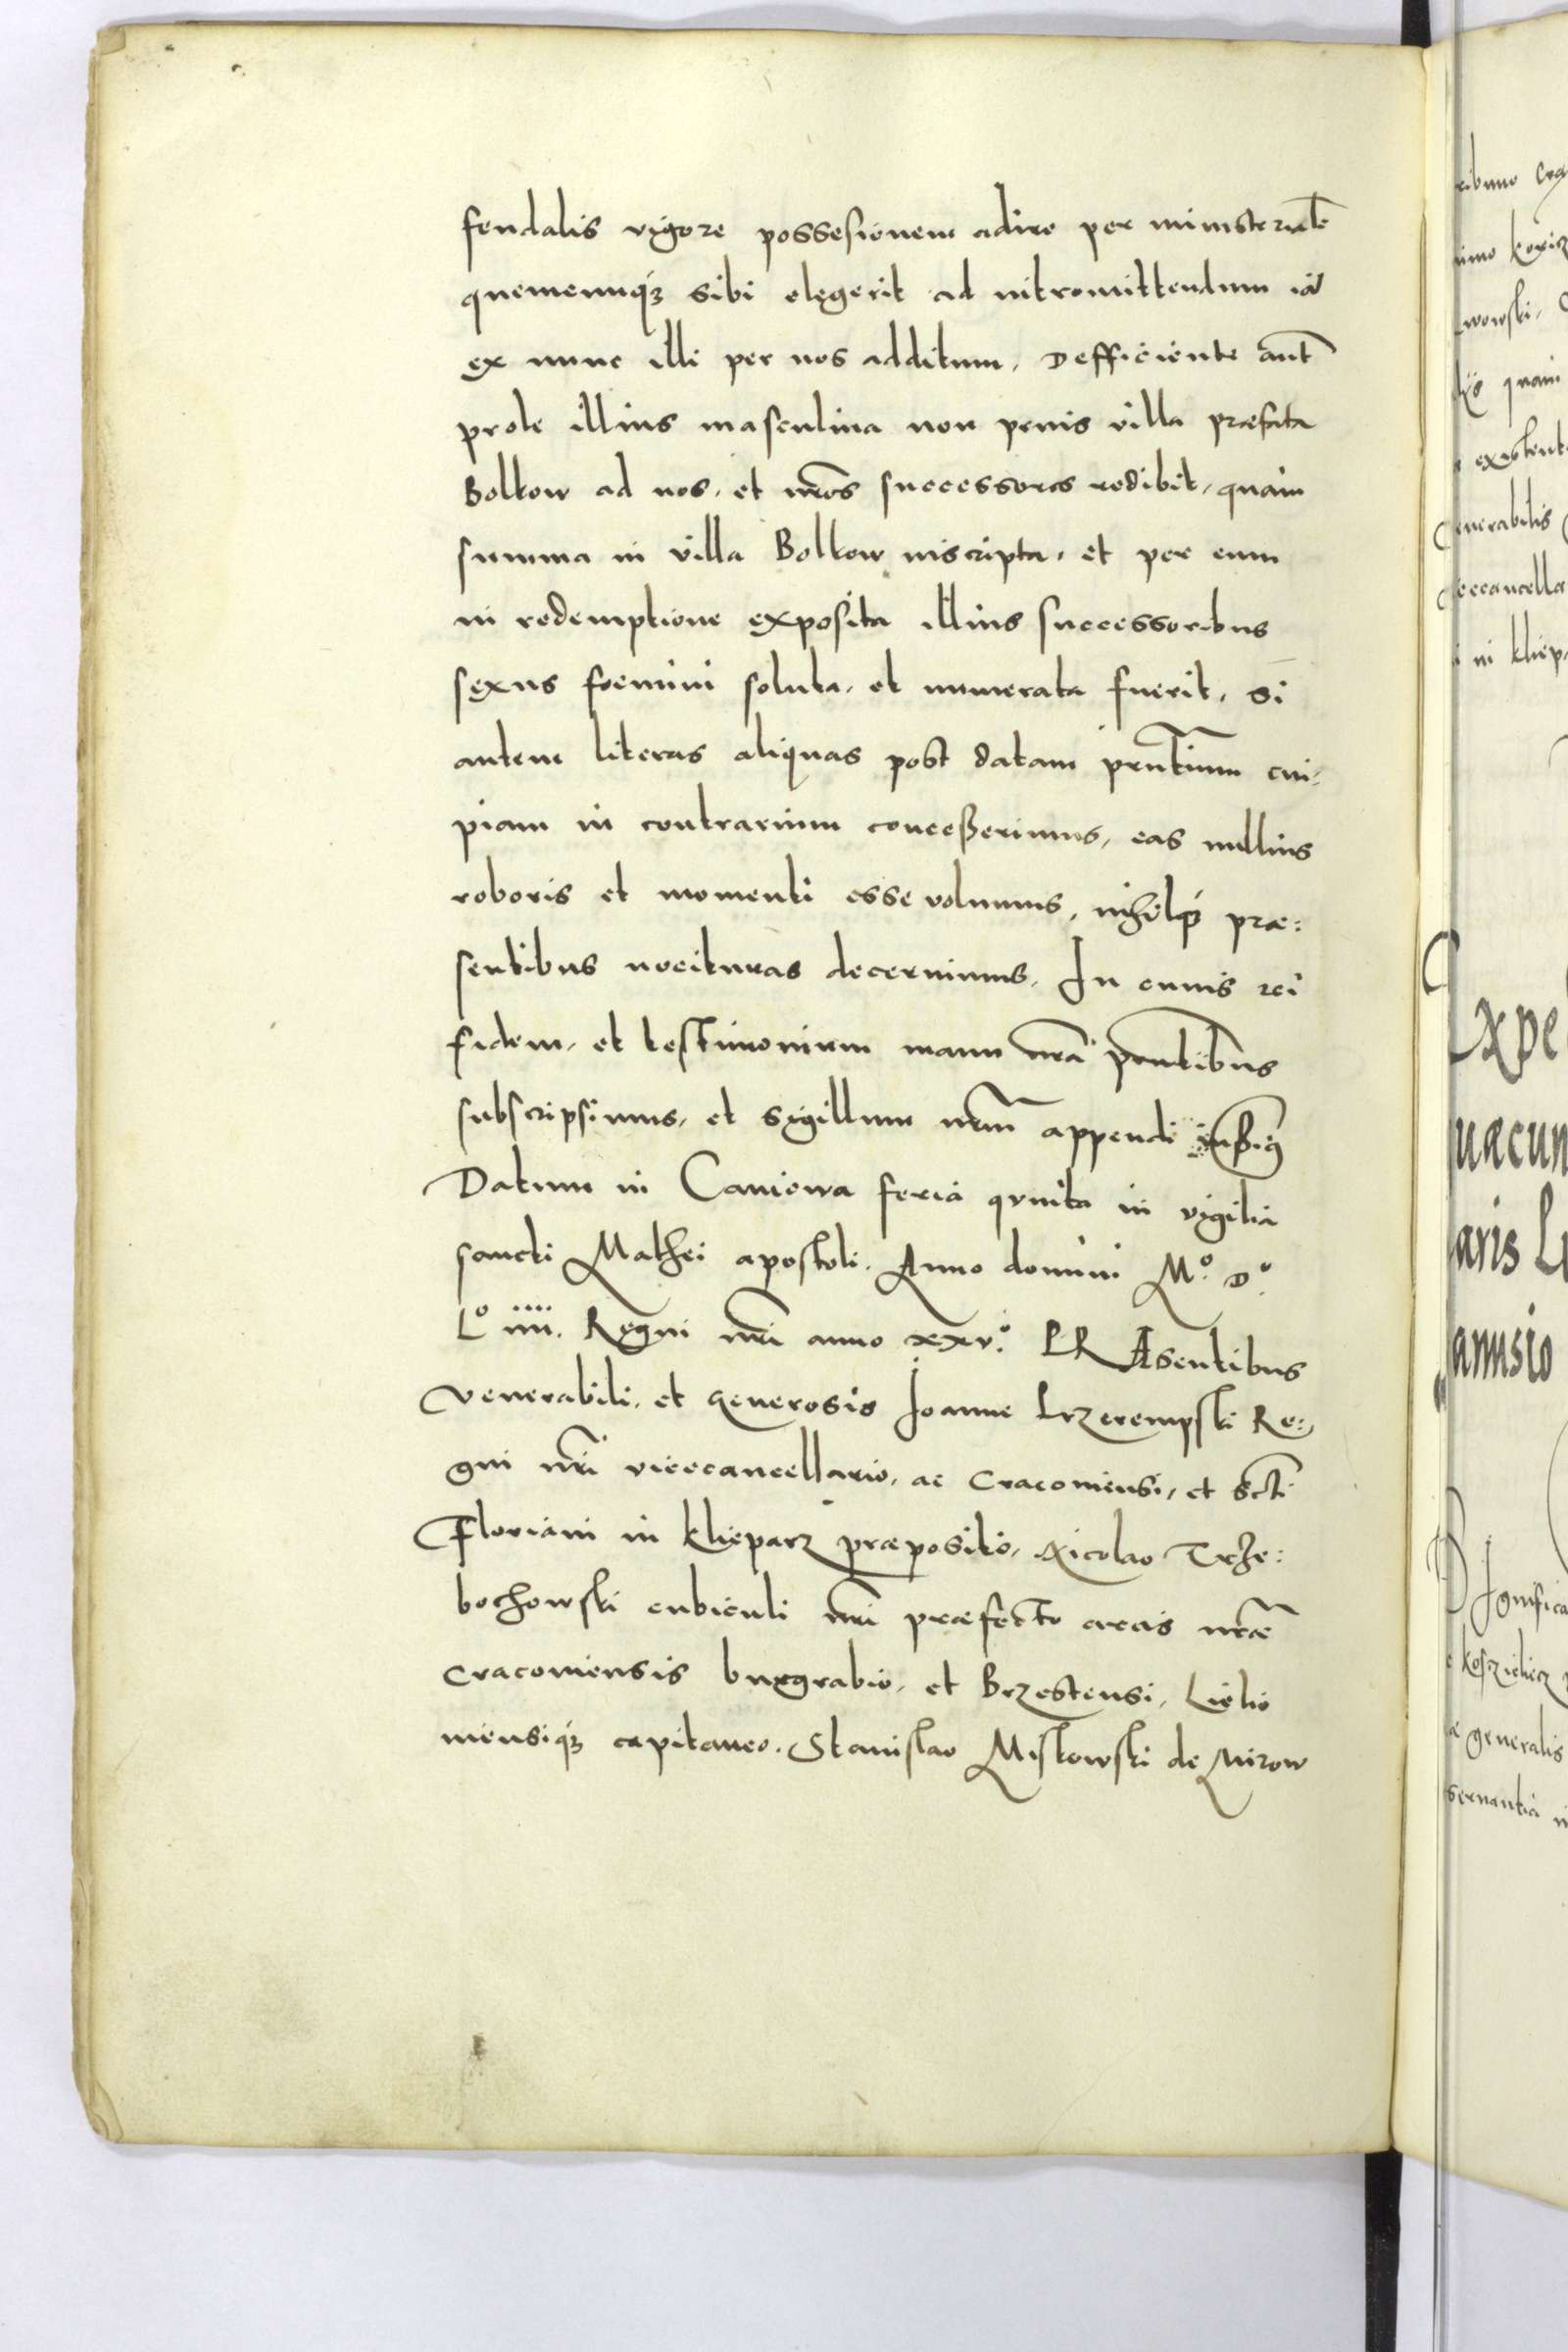 feudalis vigore possesionem adire per ministerialẽ
quemcunqꝫ sibi elegerit ad intromittendum iã
ex nunc illi per nos additum. Defficiente aut̃
prole illius masculina non prius villa præfata
Bolkow ad nos, et nr̃os successores redibit, quam
summa in villa Bolkow inscripta, et per eum
in redemptione exposita illius successoribus
sexus foeminini soluta, et numerata fuerit, Si
autem literas aliquas post datam pr̃ntium cui-
piam in contrarium conceßerimus, eas nullius
roboris et momenti esse volumus, nihilqꝫ præ:
sentibus nocituras decernimus. In cuius rei
fidem, et testimonium manu nr̃a pr̃ntibus
subscripsimus, et sigillum nr̃um appendi iußimus
Datum in Caniowa feria quinta in vigilia
sancti Mathei apostoli. Anno domini Mº. Dº.
Lº iiii. Regni nr̃i anno xxvº. PRAEsentibus
Venerabili, et generosis Joanne Przerempski Re:
gni nr̃i vicecancellario, ac Cracoviensi, et Scti
Floriani in Klieparz præposito, Nicolao Trze:
bochowski cubiculi nr̃i præfecto arcis nr̃æ
Cracoviensis burgrabio, et Brzestensi, Lielio
viensiqꝫ capitaneo. Stanislao Miskowski de Mirow